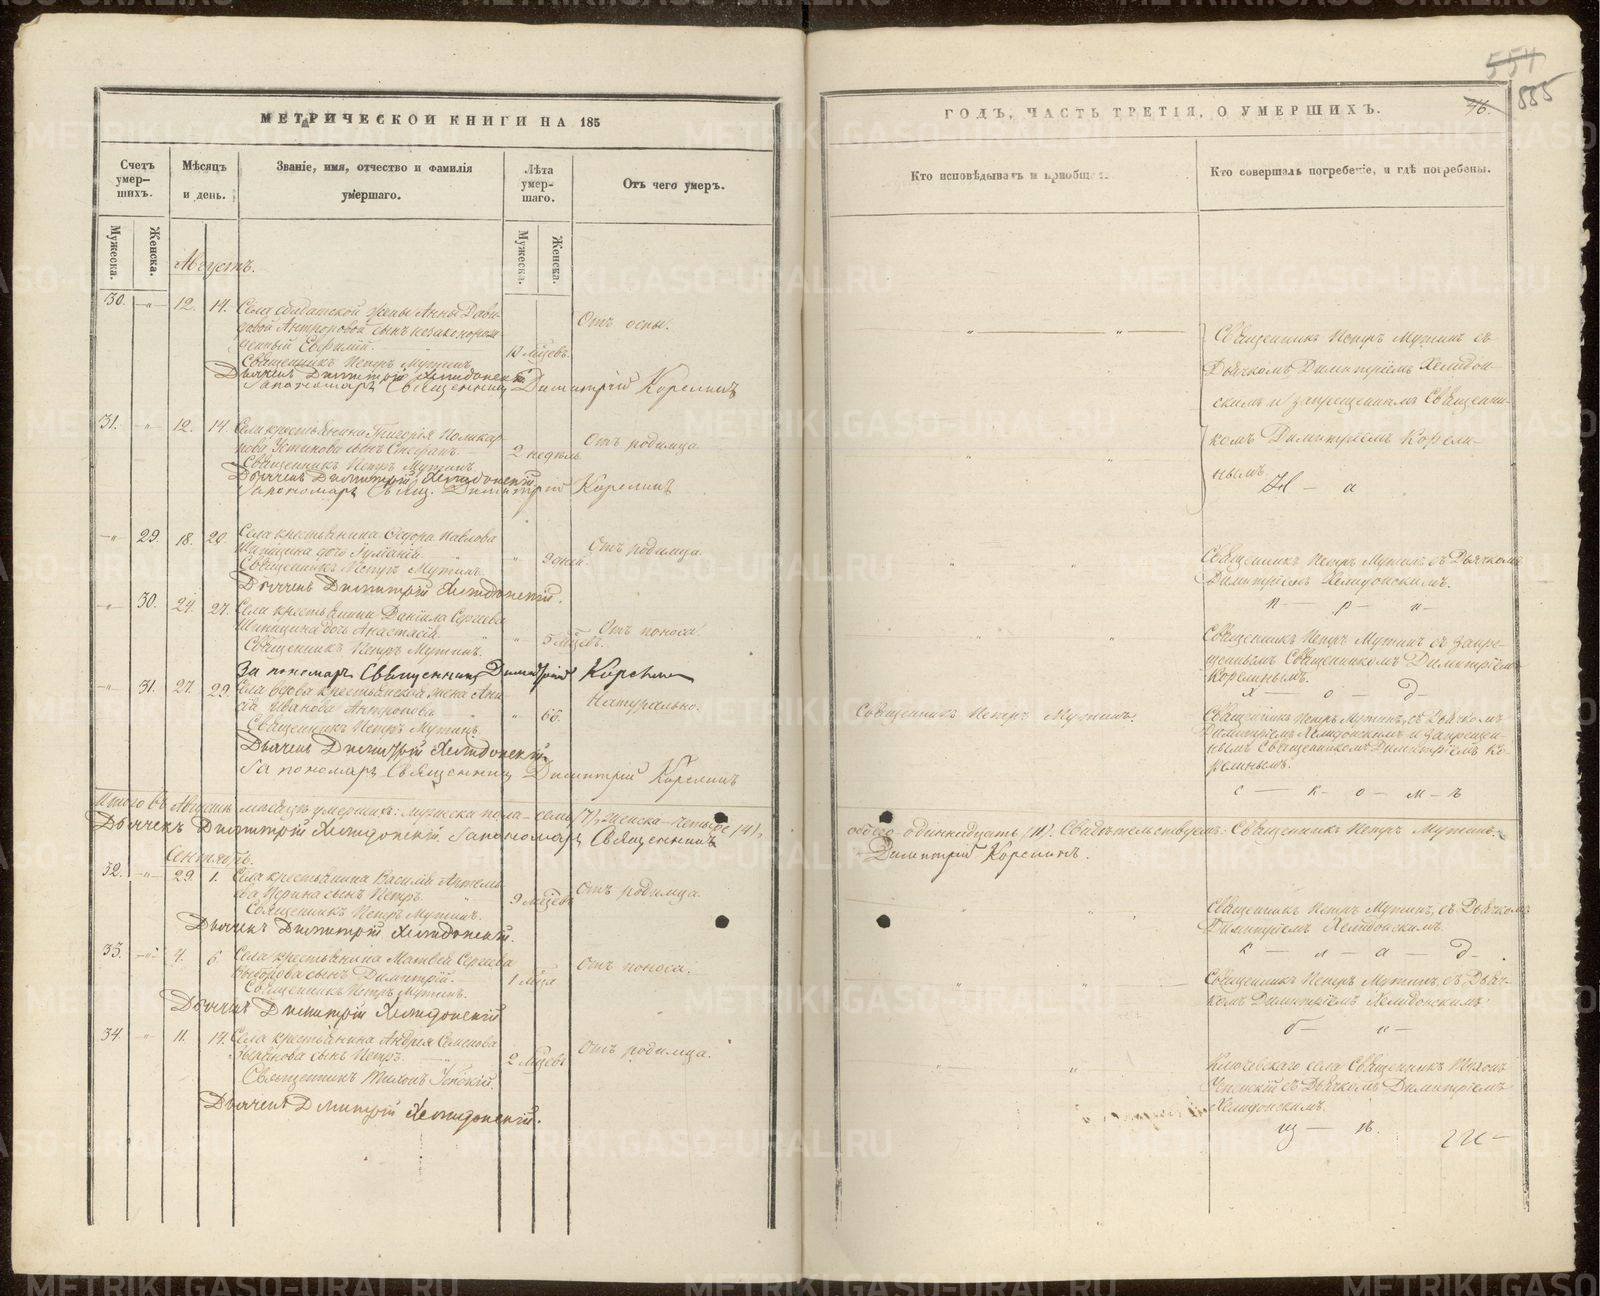 МЕТРИЧЕСКОЙ КНИГИ НА 185
Счетъ умер-шихъ.
Мѣсяцъ и день.
Званіе, имя, отчество и фамилія умершаго.
Лѣта умер-шаго.
Отъ чего умеръ.
Мужеска.
Женска.
Мужеска.
Женска.
Августъ.
30. -"- 12. 14. Села солдатской жены Анны Дави-
довой Антроповой сынъ незаконорож-
денный Евфимій. 10 мѣсцевъ. Отъ оспы.
Священникъ Петръ Мутинъ.
Дьячекъ Димитрій Хелидонскій
За пономаря Священникъ Димитрій Корелинъ
31. -"- 12. 14. Села крестьянина Григорія Поликар-
пова Устинова сынъ Стефанъ. 2 недѣль Отъ родимца.
Священникъ Петръ Мутинъ.
Дьячекъ Димитрій Хелидонскій
За пономаря Свящ. Димитрій Корелинъ
-"- 29. 18. 20. Села крестьянина Ѳедора Павлова
дочь " 9 дней. Отъ родимца.
Священникъ Петръ Мутинъ.
Дьячекъ Димитрій Хелидонскій.
-"- 30. 24. 27. Села крестьянина Даніила Сергеева
Шипицина дочь Анастасія. " 5 мѣсцевъ. Отъ поноса.
Священникъ Петръ Мутинъ.
За пономаря Священникъ Димитрій Корелинъ
-"- 31. 27. 29. Села вдова крестьянская жена Ани-
сія Иванова Антропова. " 66. Натурально.
Священникъ Петръ Мутинъ.
Дьячекъ Димитрій Хелидонскій.
За пономаря Священникъ Димитрій Корелинъ
Итого въ Августѣ мѣсяцѣ умершихъ: мужеска пола - семь /7/, женска - четыре /4/,
Дьячекъ Димитрій Хелидонскій. За пономаря Священникъ
Сентябрь.
32. -"- 29. 1. Села крестьянина Василія Артемь-
ева сынъ Петръ. 9 мѣсцевъ Отъ родимца.
Священникъ Петръ Мутинъ.
Дьячекъ Димитрій Хелидонскій.
33. -"- 4. 6. Села крестьянина Матвея Сергеева
сынъ Димитрій. 1 мѣсца Отъ поноса.
Священникъ Петръ Мутинъ.
Дьячекъ Димитрій Хелидонскій
34. -"- 11. 14. Села крестьянина Андрея Семенова
Зырянова сынъ Петръ. 2 мѣсцевъ Отъ родимца.
Священникъ Тихонъ Успскій.
Дьячекъ Димитрій Хелидонскій.
554
46. 555
ГОДЪ, ЧАСТЬ ТРЕТІЯ, О УМЕРШИХЪ.
Кто исповѣдывалъ и пріобщалъ.
Кто совершалъ погребеніе, и гдѣ погребены.
Священникъ Петръ Мутинъ съ
Дьячкомъ Димитріемъ Хелидон-
скимъ и запрещеннымъ Священни-
комъ Димитріемъ Корели-
нымъ.
Н — а
Священникъ Петръ Мутинъ съ Дьячкомъ
Димитріемъ Хелидонскимъ.
п — р — и —
Священникъ Петръ Мутинъ съ запре-
щеннымъ Священникомъ Димитріемъ
Корелинымъ.
х — о — д —
Священникъ Петръ Мутинъ.
Священникъ Петръ Мутинъ, съ Дьячкомъ
Димитріемъ Хелидонскимъ и запрещен-
нымъ Священникомъ Димитріемъ Ко-
релинымъ.
с — к — о — м — ъ
обоего одиннадцать /11/. Свидѣтельствуетъ: Священникъ Петръ Мутинъ.
Димитрій Корелинъ.
Священникъ Петръ Мутинъ, съ Дьячкомъ
Димитріемъ Хелидонскимъ.
к — л — а — д —
Священникъ Петръ Мутинъ, съ Дьяч-
комъ Димитріемъ Хелидонскимъ
б — и —
Ключевскаго села Священникъ Тихонъ
Успенскій съ Дьячкомъ Димитріемъ
Хелидонскимъ.
щ — ѣ.
METRIKI.GASO-URAL.RU